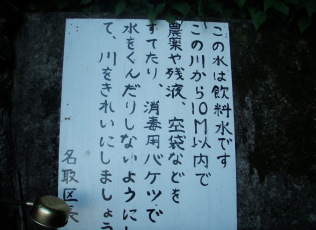 この水は飲料水です
この川から10M以内で
農薬や残液、空袋などを
すてたり、消毒用バケツで
水をくんだりしないようにし
て、川をきれいにしましょう
名取区長